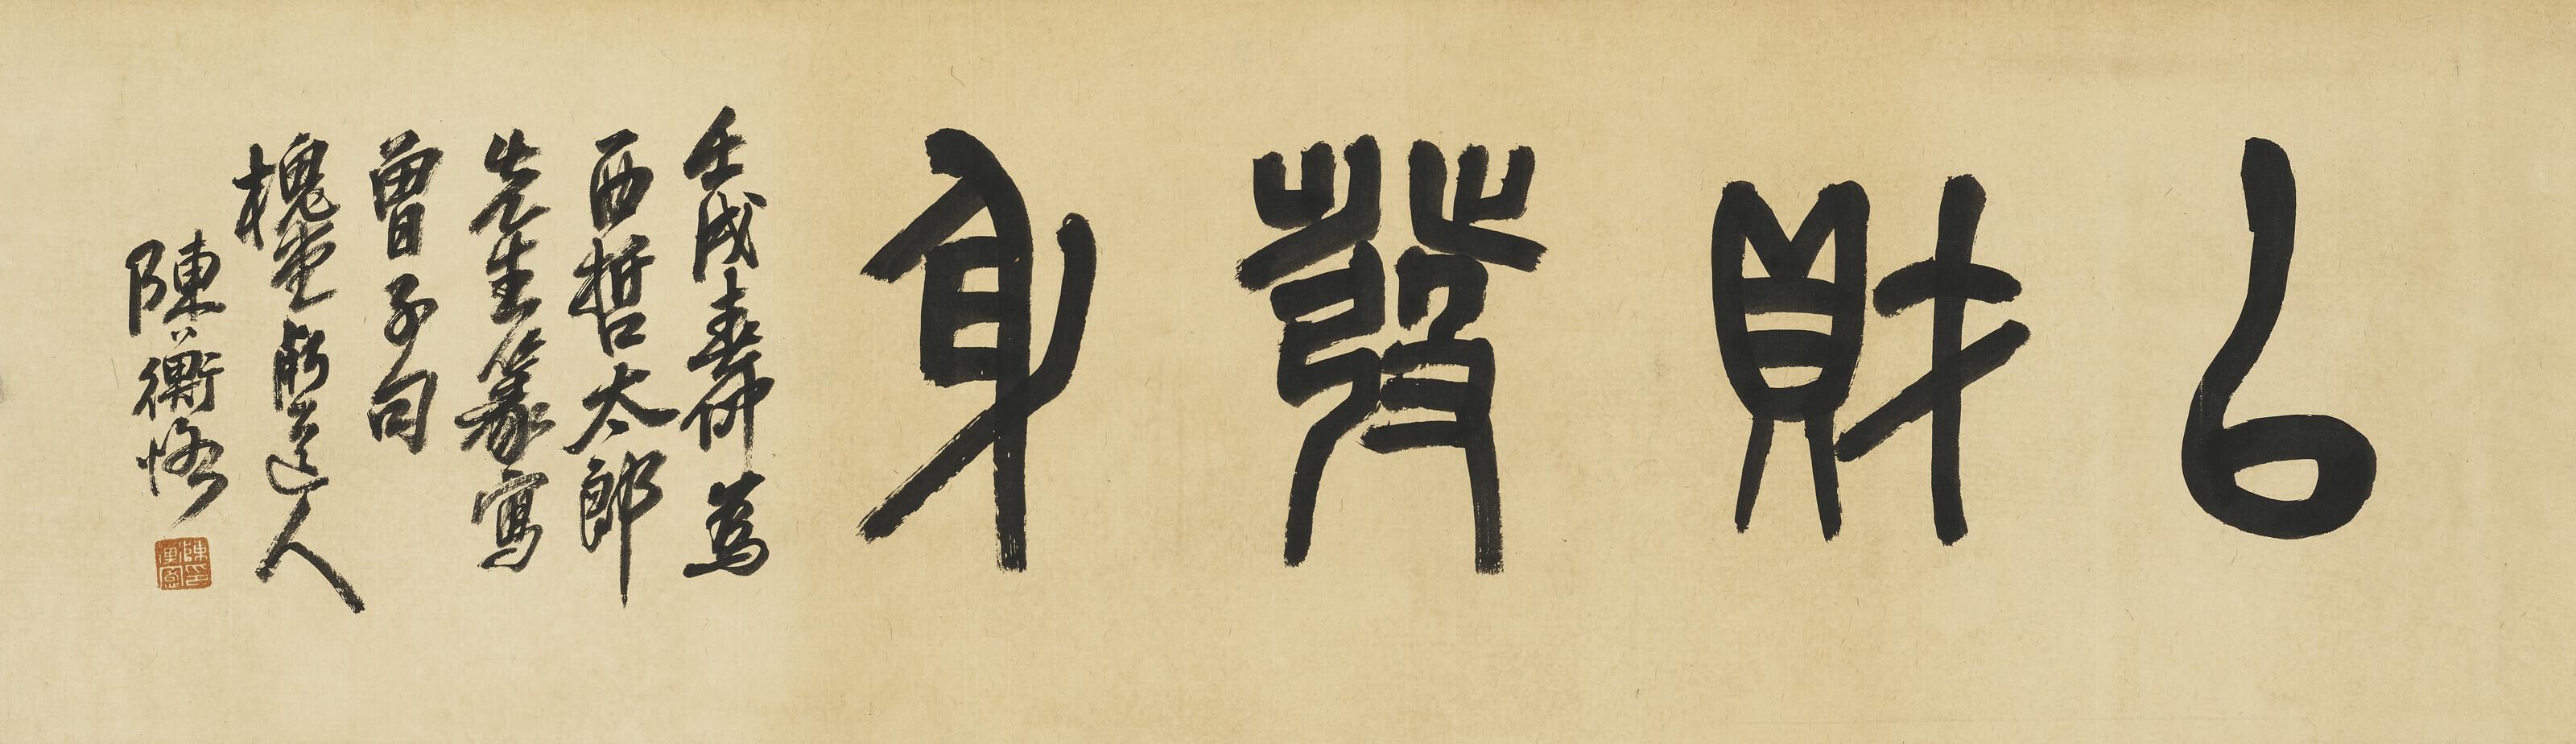 以財發身
壬戌春仲為
西哲太郎
先生篆寫
曾子句
槐堂朽道人
陳衡恪